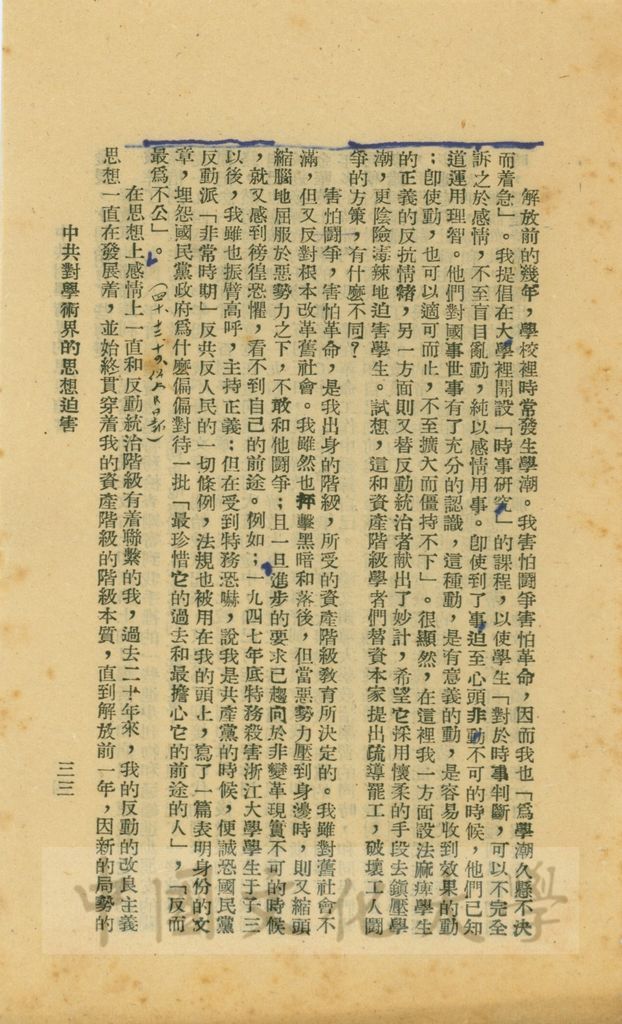 解放前的幾年，學校裡時常發生學潮。我害怕鬪爭害怕革命，因而我也「爲學潮久懸不決
而着急」。我提倡在大學裡開設「時事研究」的課程，以使學生「對於時事判斷，可以不完全
訴之於感情，不至盲目亂動，純以感情用事。卽使到了事迫至心頭非動不可的時候，他們已知
道運用理智。他們對國事世事有了充分的認識，這種動，是有意義的動，是容易收到效果的動
；卽使動，也可以適可而止，不至擴大而僵持不下」。很顯然，在這裡我一方面設法麻痺學生
的正義的反抗情緒，另一方面則又替反動統治者献出了妙計，希望它採用懷柔的手段去鎭壓學
潮，更陰險毒辣地迫害學生。試想，這和資產階級學者們替資本家提出疏導罷工，破壞工人鬪
爭的方策，有什麼不同？
害怕鬪爭，害怕革命，是我出身的階級，所受的資產階級教育所決定的。我雖對舊社會不
滿，但又反對根本改革舊社會。我雖然也抨擊黑暗和落後，但當惡勢力壓到身邊時，則又縮頭
縮腦地屈服於惡勢力之下，不敢和他鬪爭；且一旦進步的要求已趨向於非變革現實不可的時候
，就又感到徬徨恐懼，看不到自己的前途。例如；一九四七年底特務殺害浙江大學學生于子三
以後，我雖也振臂高呼，主持正義；但在受到特務恐嚇，說我是共產黨的時候，便誠恐國民黨
反動派「非常時期」反共反人民的一切條例，法規也被用在我的頭上，寫了一篇表明身份的文
章，埋怨國民黨政府爲什麼偏偏對待一批「最珍惜它的過去和最擔心它的前途的人」，「反而
最爲不公」。
在思想上感情上一直和反動統治階級有着聯繫的我，過去二十年來，我的反動的改良主義
思想一直在發展着，並始終貫穿着我的資產階級的階級本質，直到解放前一年，因新的局勢的
中共對學術界的思想迫害
三三
中國文化大學